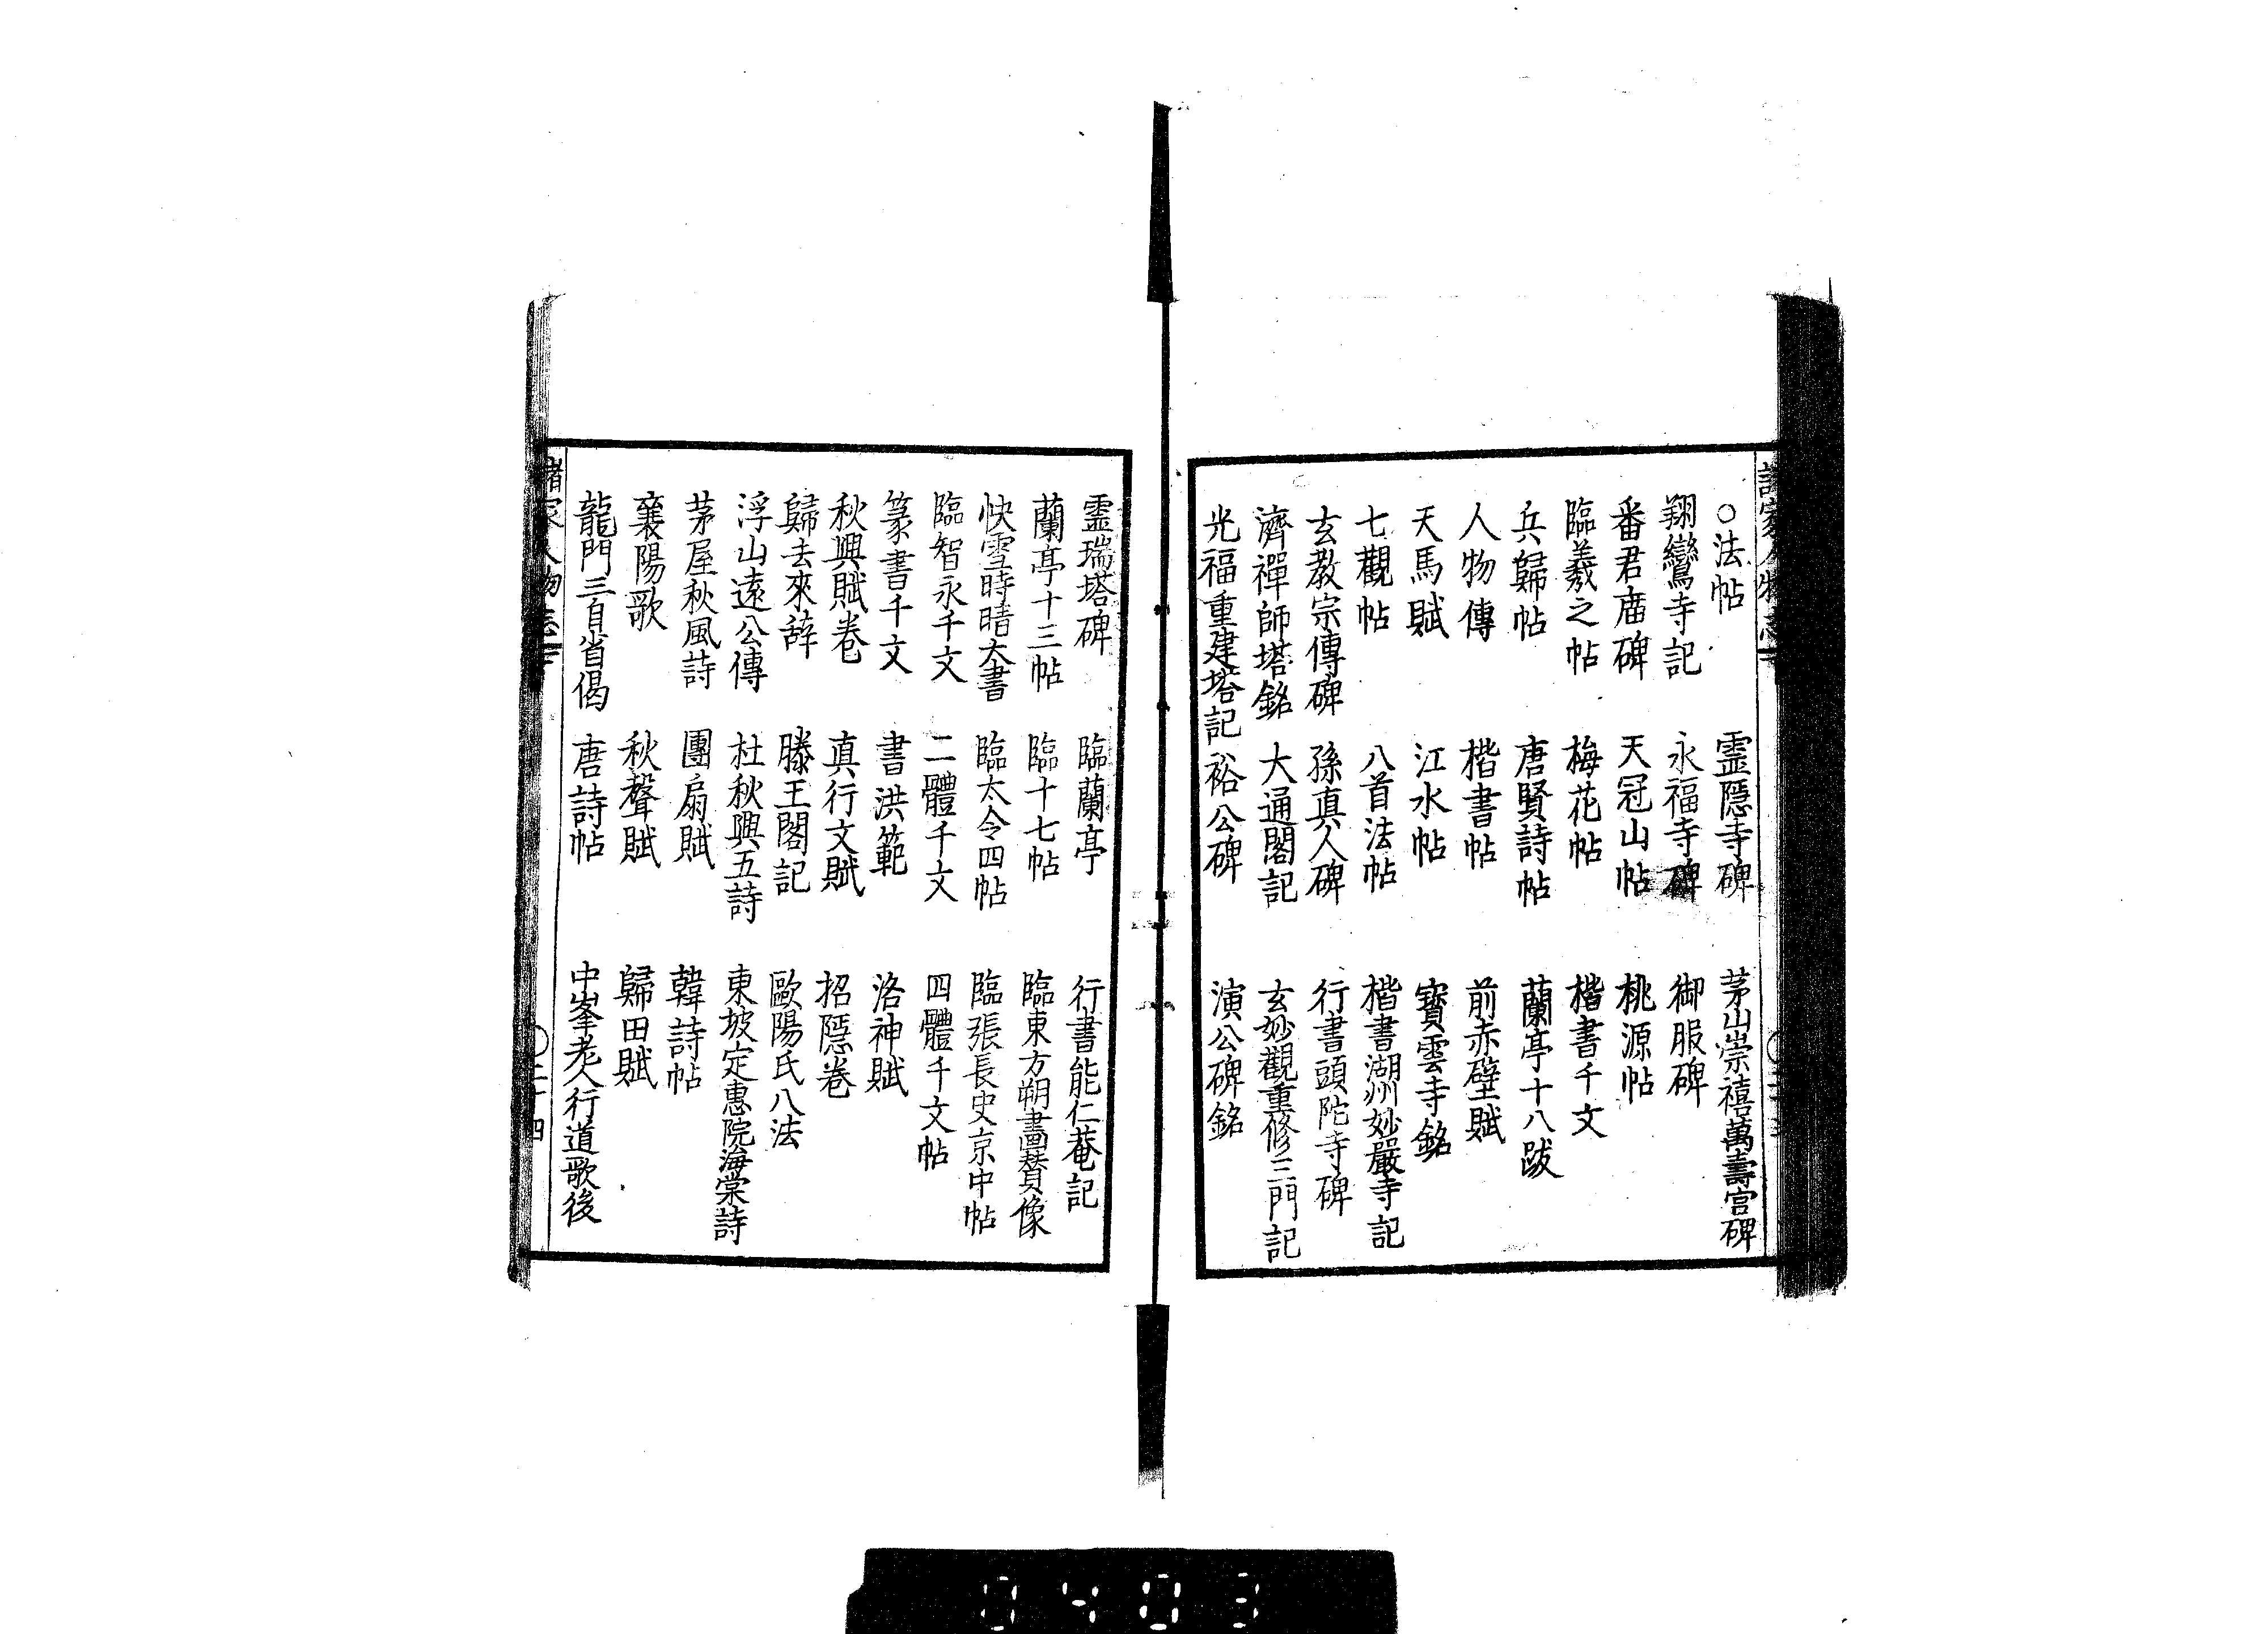 ○法帖　霊隱寺碑　茅山崇禧萬壽宮碑
翔鸞寺記　永福寺碑　御服碑
番君庿碑　天冠山帖　桃源帖
臨羲之帖　梅花帖　楷書千文
兵歸帖　唐賢詩帖　蘭亭十八跋
人物傳　楷書帖　前赤壁賦
天馬賦　江水帖　寳雲寺銘
七觀帖　八首法帖　楷書湖州妙嚴寺記
玄教宗傳碑　孫真人碑　行書頭陀寺碑
濟禪師塔銘　大通閣記　玄妙觀重修三門記
光福重建塔記　裕公碑　演公碑銘
霊瑞塔碑　臨蘭亭　行書能仁菴記
蘭亭十三帖　臨十七帖　臨東方朔畫賛像
快雪時晴大書　臨太令四帖　臨張長史京中帖
臨智永千文　二體千文　四體千文帖
篆書千文　書洪範　洛神賦
秋興賦卷　真行文賦　招隱卷
歸去來辞　滕王閣記　歐陽氏八法
浮山遠公傳　杜秋興五詩　東坡定惠院海棠詩
茅屋秋風詩　團扇賦　韓詩帖
襄陽歌　秋聲賦　歸田賦
龍門三自省偈　唐詩帖　中峯老人行道歌後
諸家人物志　二十四
0403